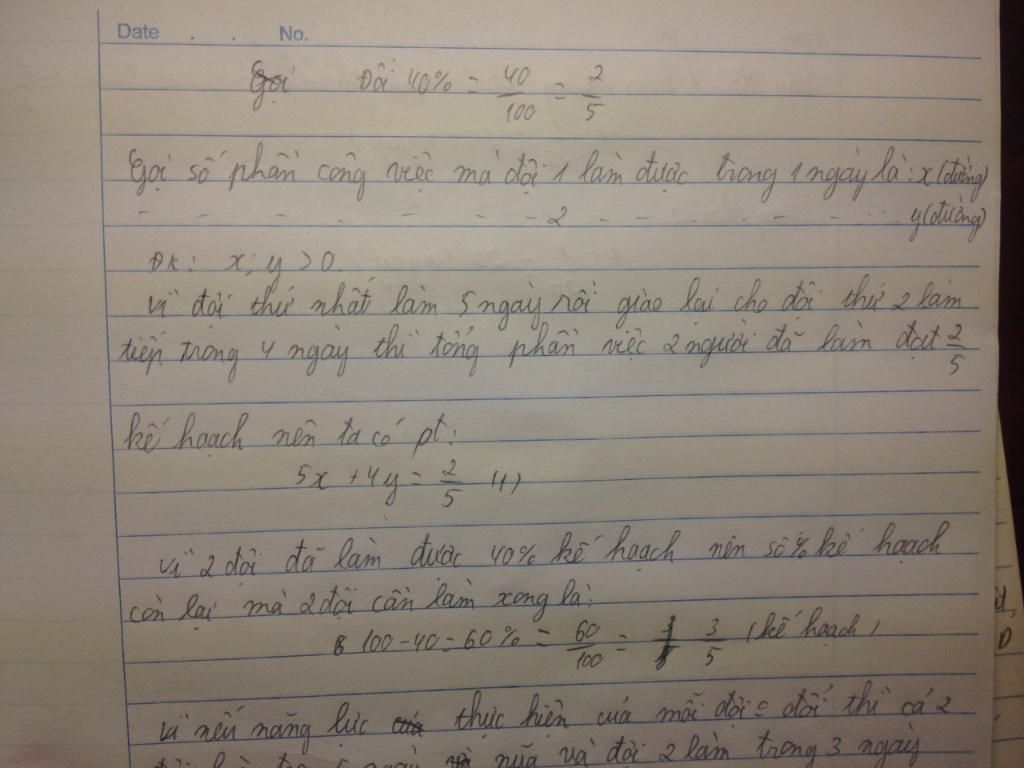 Date . . No.
Gọi Đổi 40% = 40/100 = 2/5
Gọi số phần công việc mà đội 1 làm được trong 1 ngày là: x (đường)
- - - - - - - 2 - - - - - - y (đường)
ĐK: x; y > 0.
Vì đội thứ nhất làm 5 ngày rồi giao lại cho đội thứ 2 làm
tiếp trong 4 ngày thì tổng phần việc 2 người đã làm đạt 2/5
kế hoạch nên ta có pt:
5x + 4y = 2/5 (1)
Vì 2 đội đã làm được 40% kế hoạch nên số % kế hoạch
còn lại mà 2 đội cần làm xong là:
100 - 40 = 60% = 60/100 = 3/5 (kế hoạch)
Vì nếu năng lực của thực hiện của mỗi đội = đổi thì cả 2
5 ngày nữa và đội 2 làm trong 3 ngày